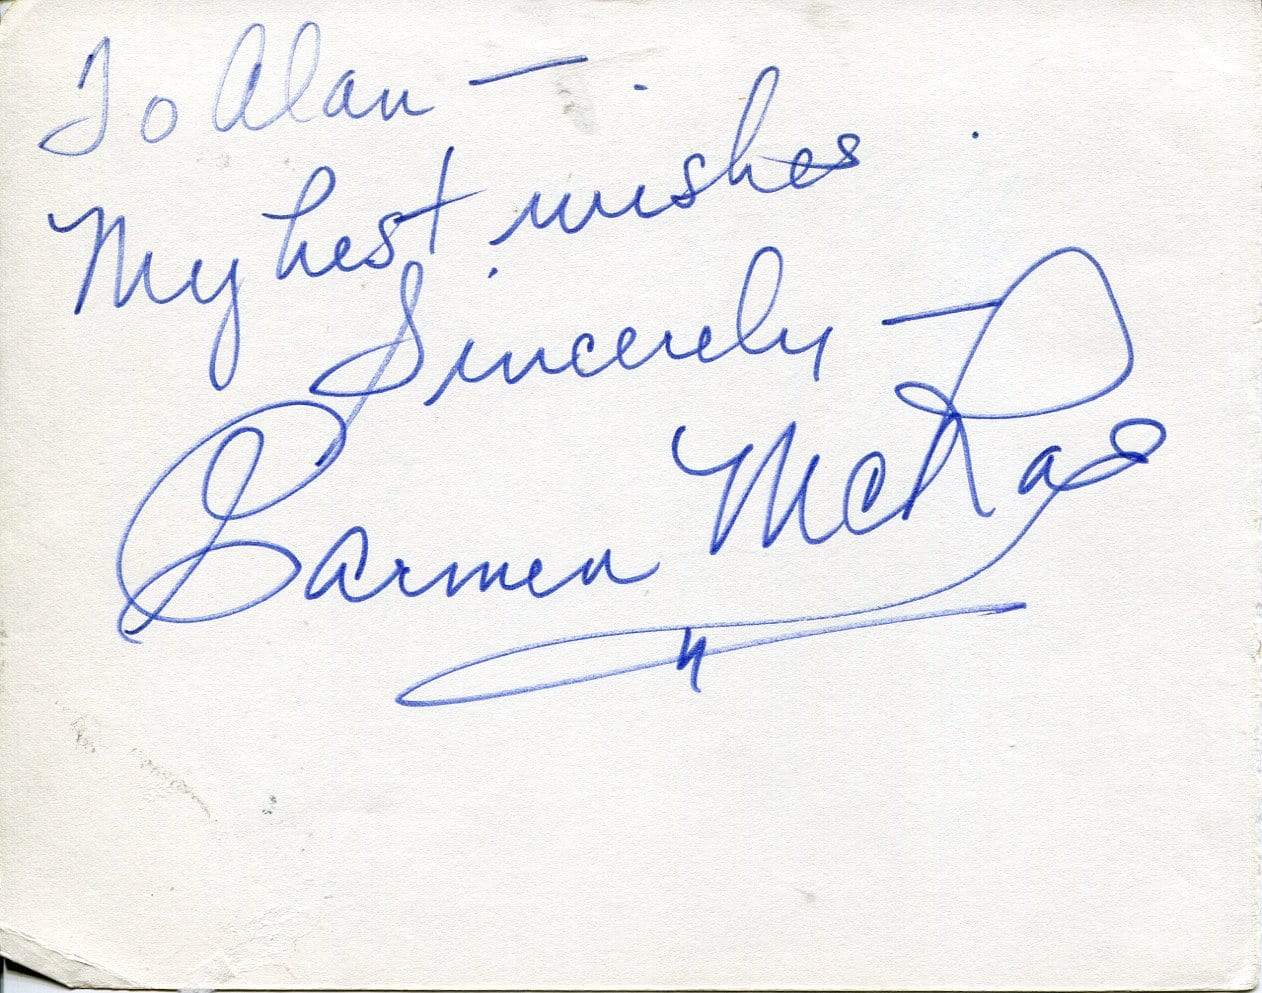 To Alan —
My best wishes
Sincerely —
Carmen McRae